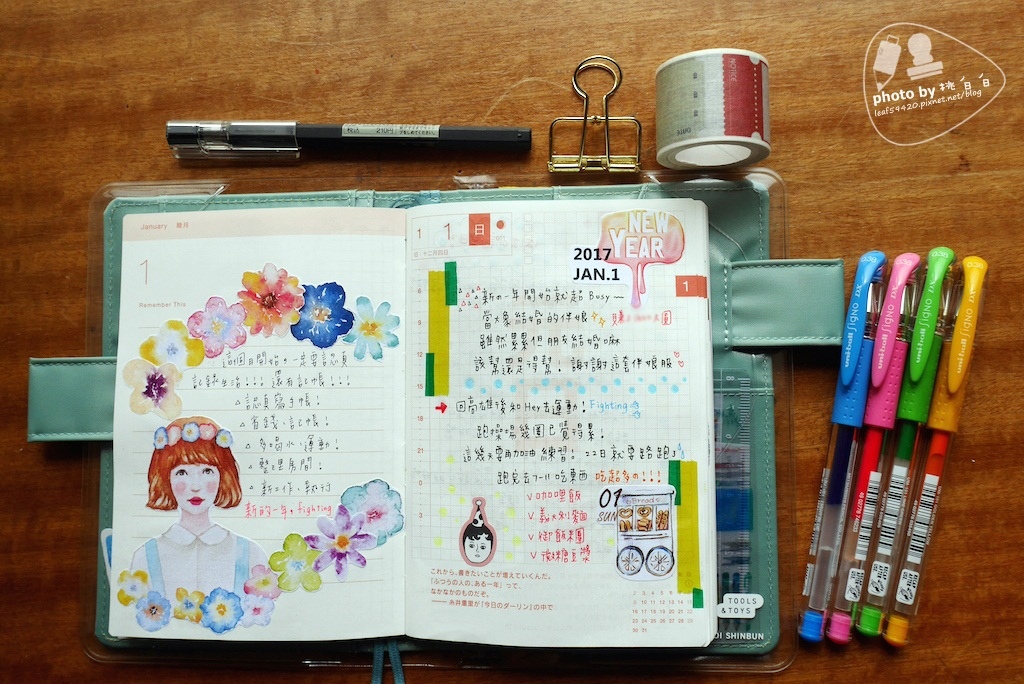 photo by 桃白白
leaf59420.pixnet.net/blog
NOTICE
税込 210円
January 睦月
1
Remember This
這個月開始,一定要認真
記錄生活!!! 還有記帳!!!
△ 認真寫手帳!
△ 省錢、記帳!
△ 多喝水、運動!
△ 整理房間!
△ 新工作、執行
新的一年,fighting
1 1 日
NEW YEAR
2017
JAN.1
1
新的一年開始就超 Busy~
當大象結婚的伴娘
雖然累累但朋友結婚嘛
該幫還是得幫!謝謝這套伴娘服
→ 回高雄後和Hey去運動! Fighting
跑操場幾圈已覺得累!
這幾天要加油練習! 22日就要路跑
跑完去7-11吃東西 吃超多の!!!
V 咖哩飯
V 義大利麵
V 御飯糰
V 微糖豆漿
01
SUN
Bread
これから、書きたいことが増えていくんだ。
「ふつうの人の、ある一年」って、
なかなかのものだぞ。
―― 糸井重里が『今日のダーリン』の中で
TOOLS
&TOYS
OI SHINBUN
uni-ball Signo DX
uni-ball Signo DX
uni-ball Signo DX
uni-ball Signo DX